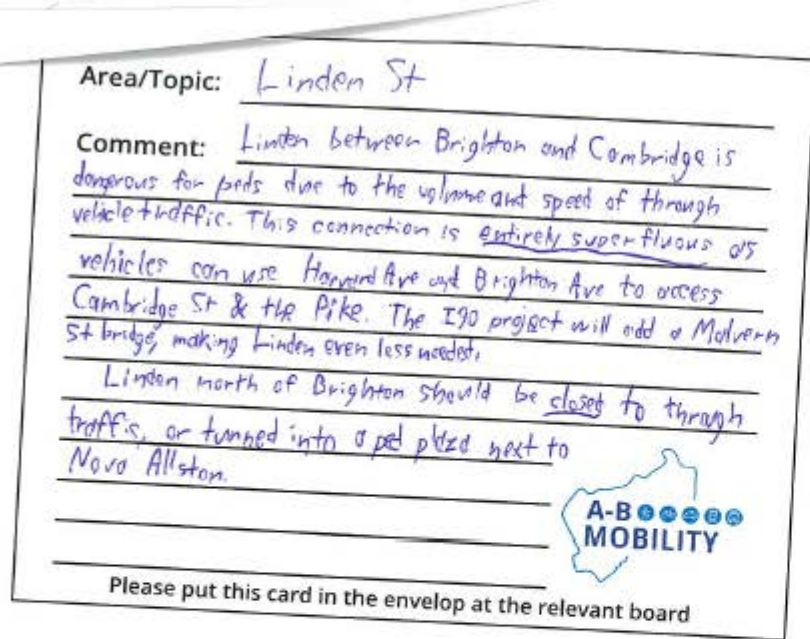 Area/Topic: Linden St
Comment: Linden between Brighton and Cambridge is
dangerous for peds due to the volume and speed of through
vehicle traffic. This connection is entirely superfluous as
vehicles can use Harvard Ave and Brighton Ave to access
Cambridge St & the Pike. The I90 project will add a Malvern
St bridge, making Linden even less needed.
Linden north of Brighton should be closed to through
traffic, or turned into a ped plaza next to
Nova Allston.
A-B
MOBILITY
Please put this card in the envelop at the relevant board